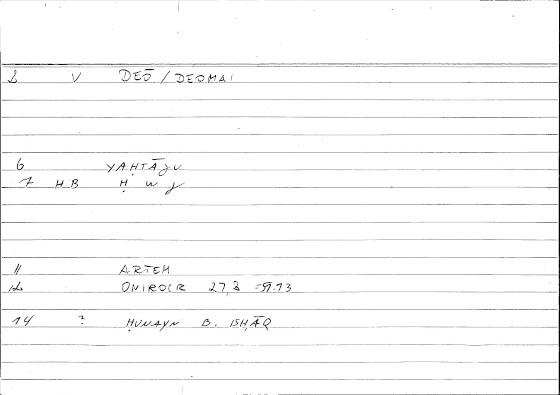 2 V DEŌ / DEOMAI
6 YAḤTĀǧU
7 HB Ḥ W ǧ
11 ARTEM
12 ONIROCR 27,8 = 51.13
14 ? ḤUNAYN B. ISḤĀQ